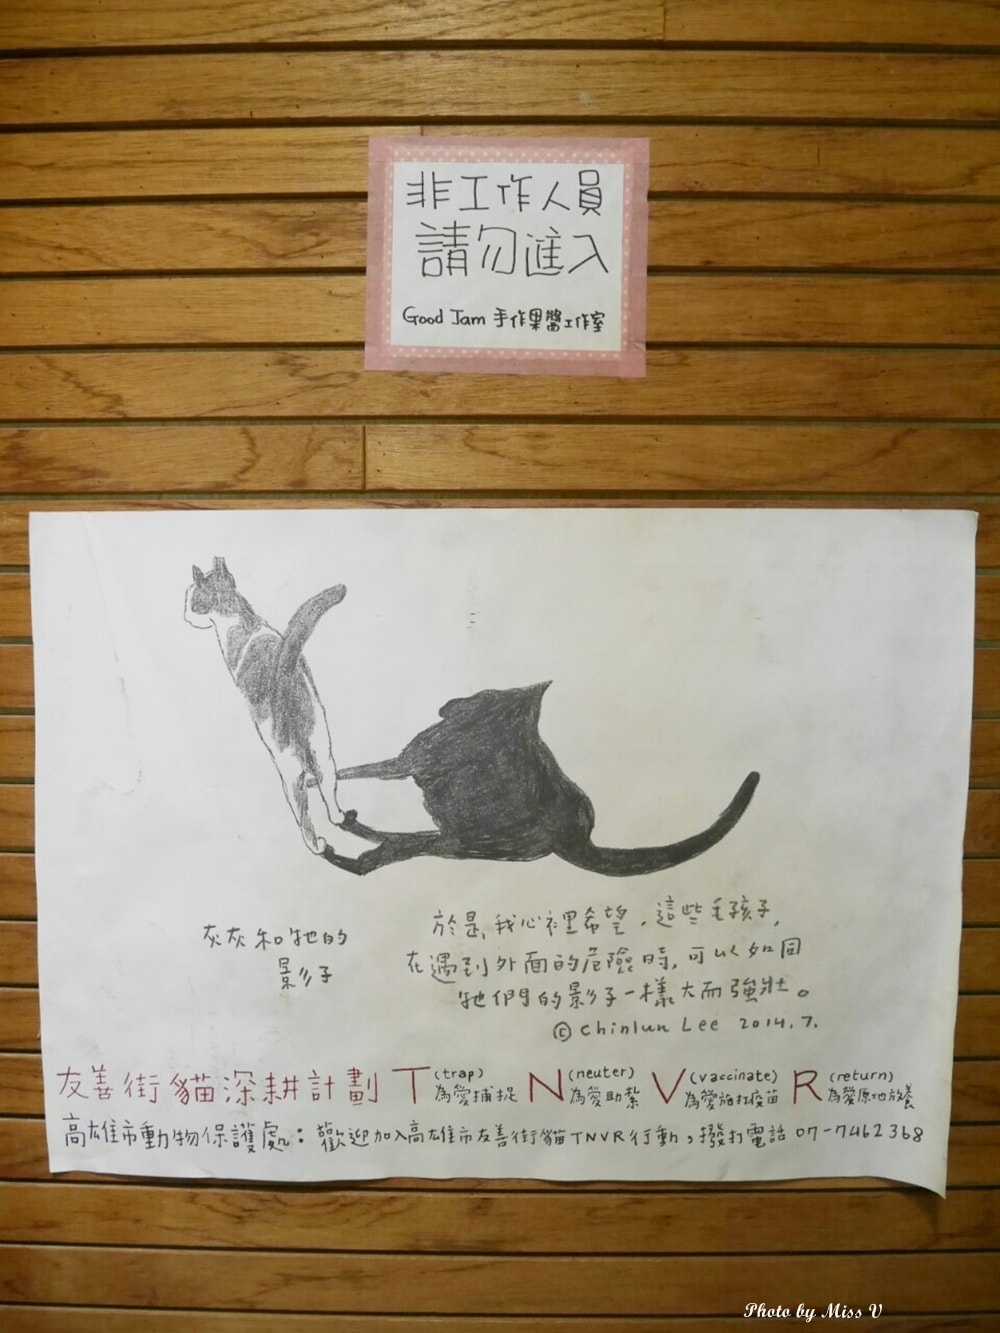 非工作人員
請勿進入
Good Jam 手作果醬工作室
灰灰和牠的
影子
於是，我心裡希望，這些毛孩子，
在遇到外面的危險時，可以如同
牠們的影子一樣大而強壯。
© Chinlun Lee 2014.7.
友善街貓深耕計劃 T (trap) 為愛捕捉 N (neuter) 為愛助紮 V (vaccinate) 為愛施打疫苗 R (return) 為愛原地放養
高雄市動物保護處：歡迎加入高雄市友善街貓TNVR行動，撥打電話 07-7462368
Photo by Miss V